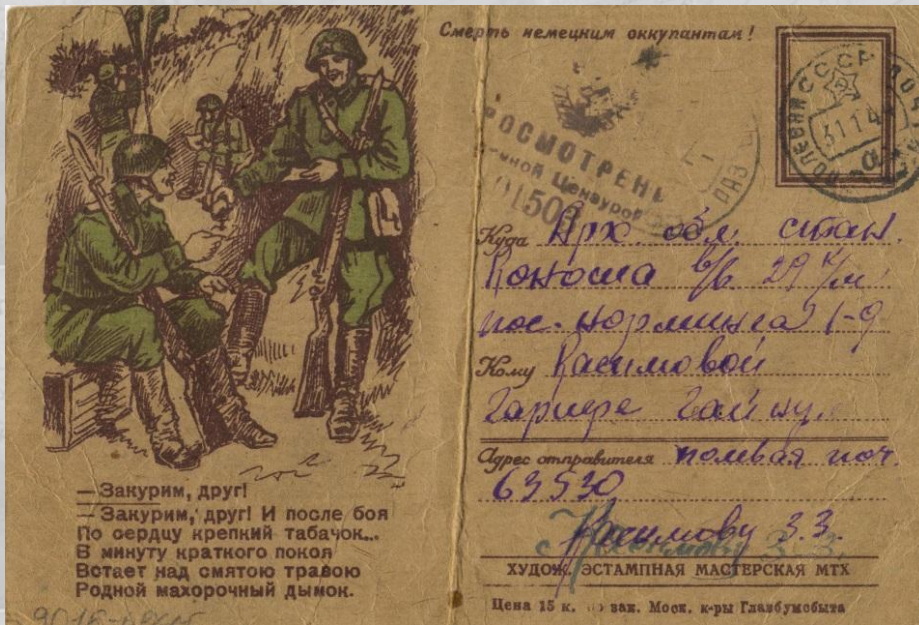 Смерть немецким оккупантам!
ПОЛЕВАЯ СССР
31 1 4
ПРОСМОТРЕНО
Военной Цензурой
01506
Куда Арх. обл. стан.
Коноша
пос.
Кому Касимовой
Адрес отправителя полевая поч.
63530
Касимову З.З.
ХУДОЖ. ЭСТАМПНАЯ МАСТЕРСКАЯ МТХ
Цена 15 к. по зак. Моск. к-ры Главбумсбыта
— Закурим, друг!
— Закурим, друг! И после боя
По сердцу крепкий табачок...
В минуту краткого покоя
Встает над смятою травою
Родной махорочный дымок.